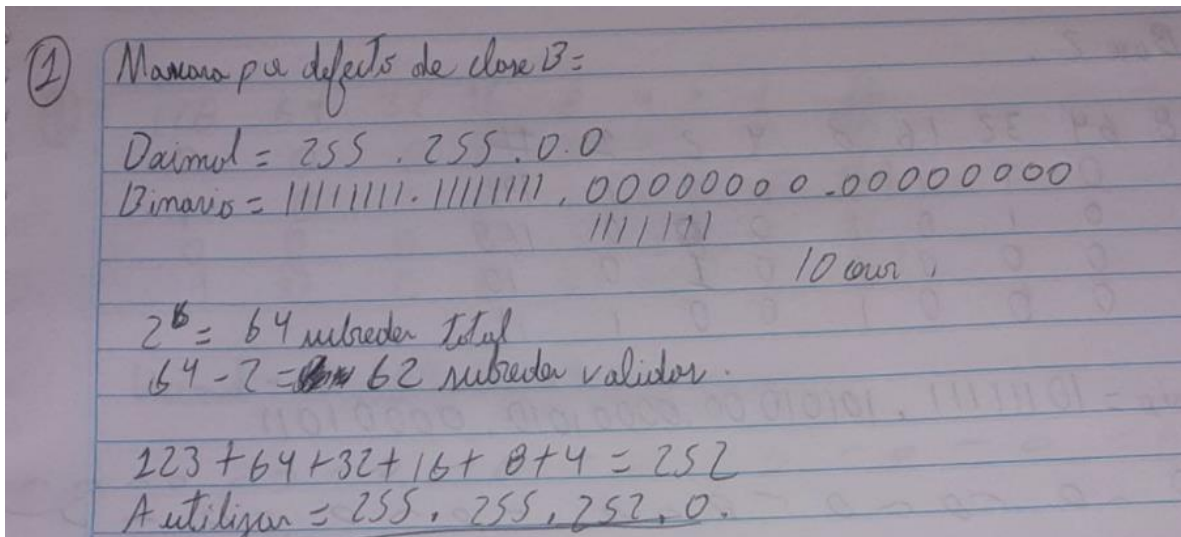 1 Mascara por defecto de clase B=
Decimal = 255 . 255 . 0.0
Binario = 11111111.11111111.00000000.00000000
1111111
10
2⁶ = 64 subredes total
64-2= 62 subredes validas.
123+64+32+16+8+4=252
A utilizar = 255. 255. 252. 0.